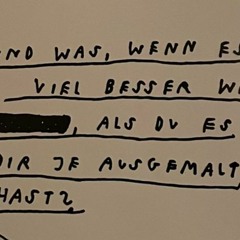 UND WAS, WENN ES
VIEL BESSER WI
, ALS DU ES
DIR JE AUSGEMALT
HAST?